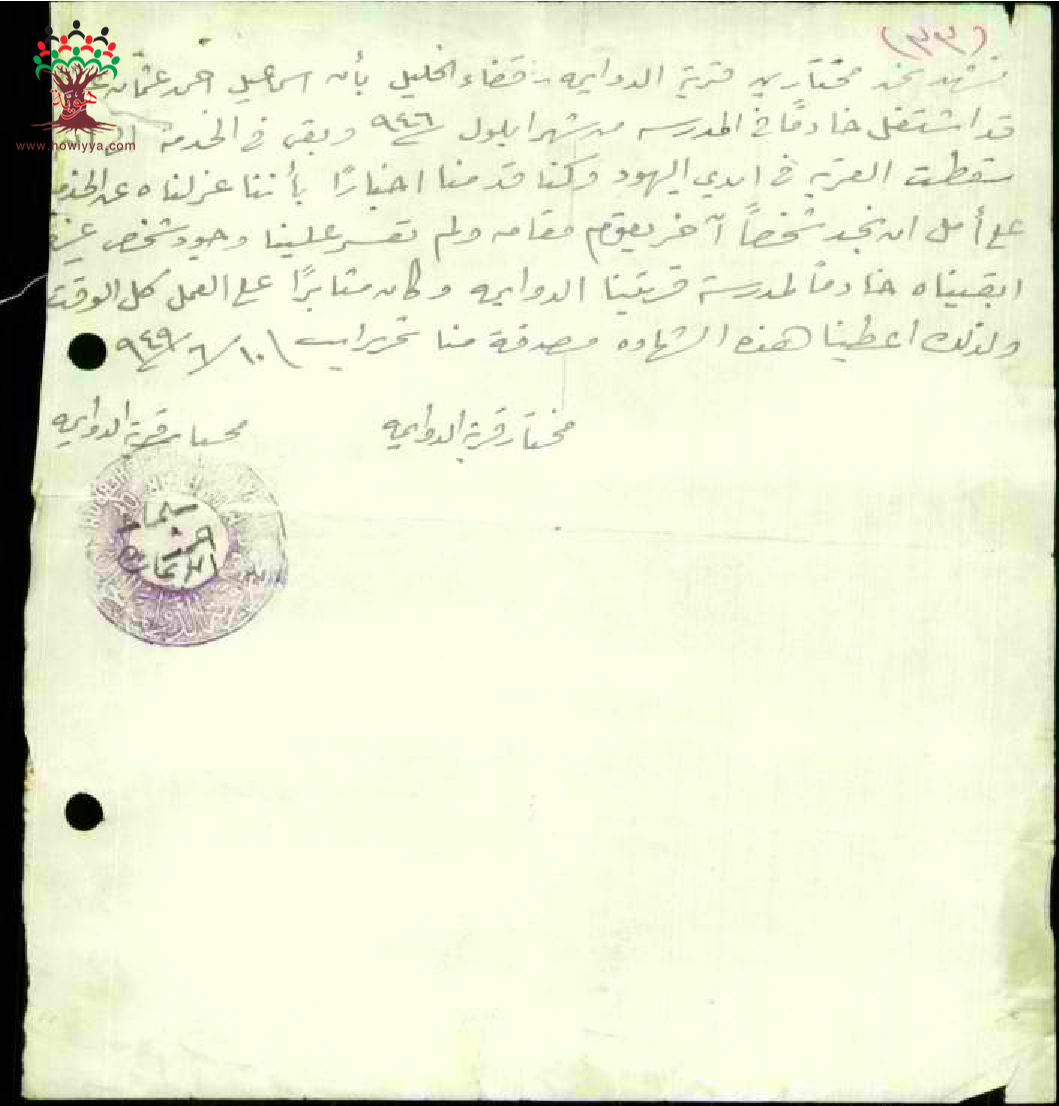 (٣٣)
نشهد نحن مختارين قرية الدوايمه قضاء الخليل بأن اسماعيل احمد عثمان
قد اشتغل خادمًا في المدرسه من شهر ايلول ٩٤٦ وبقى في الخدمة
سقطت القريه في ايدي اليهود وكنا قدمنا اخبارًا بأننا عزلناه عن
على أمل ان نجد شخصاً آخر يقوم مقامه ولم تفسر علينا وجود شخص
ابقيناه خادماً لمدرسة قريتنا الدوايمه وكان مثابرًا على العمل كل الوقت
ولذلك اعطينا هذه الشهاده مصدقة منا تحريرا في ١٠/٦/٩٤٩
مختار قرية الدوايمه
مختار قرية الدوايمه
www.howiyya.com